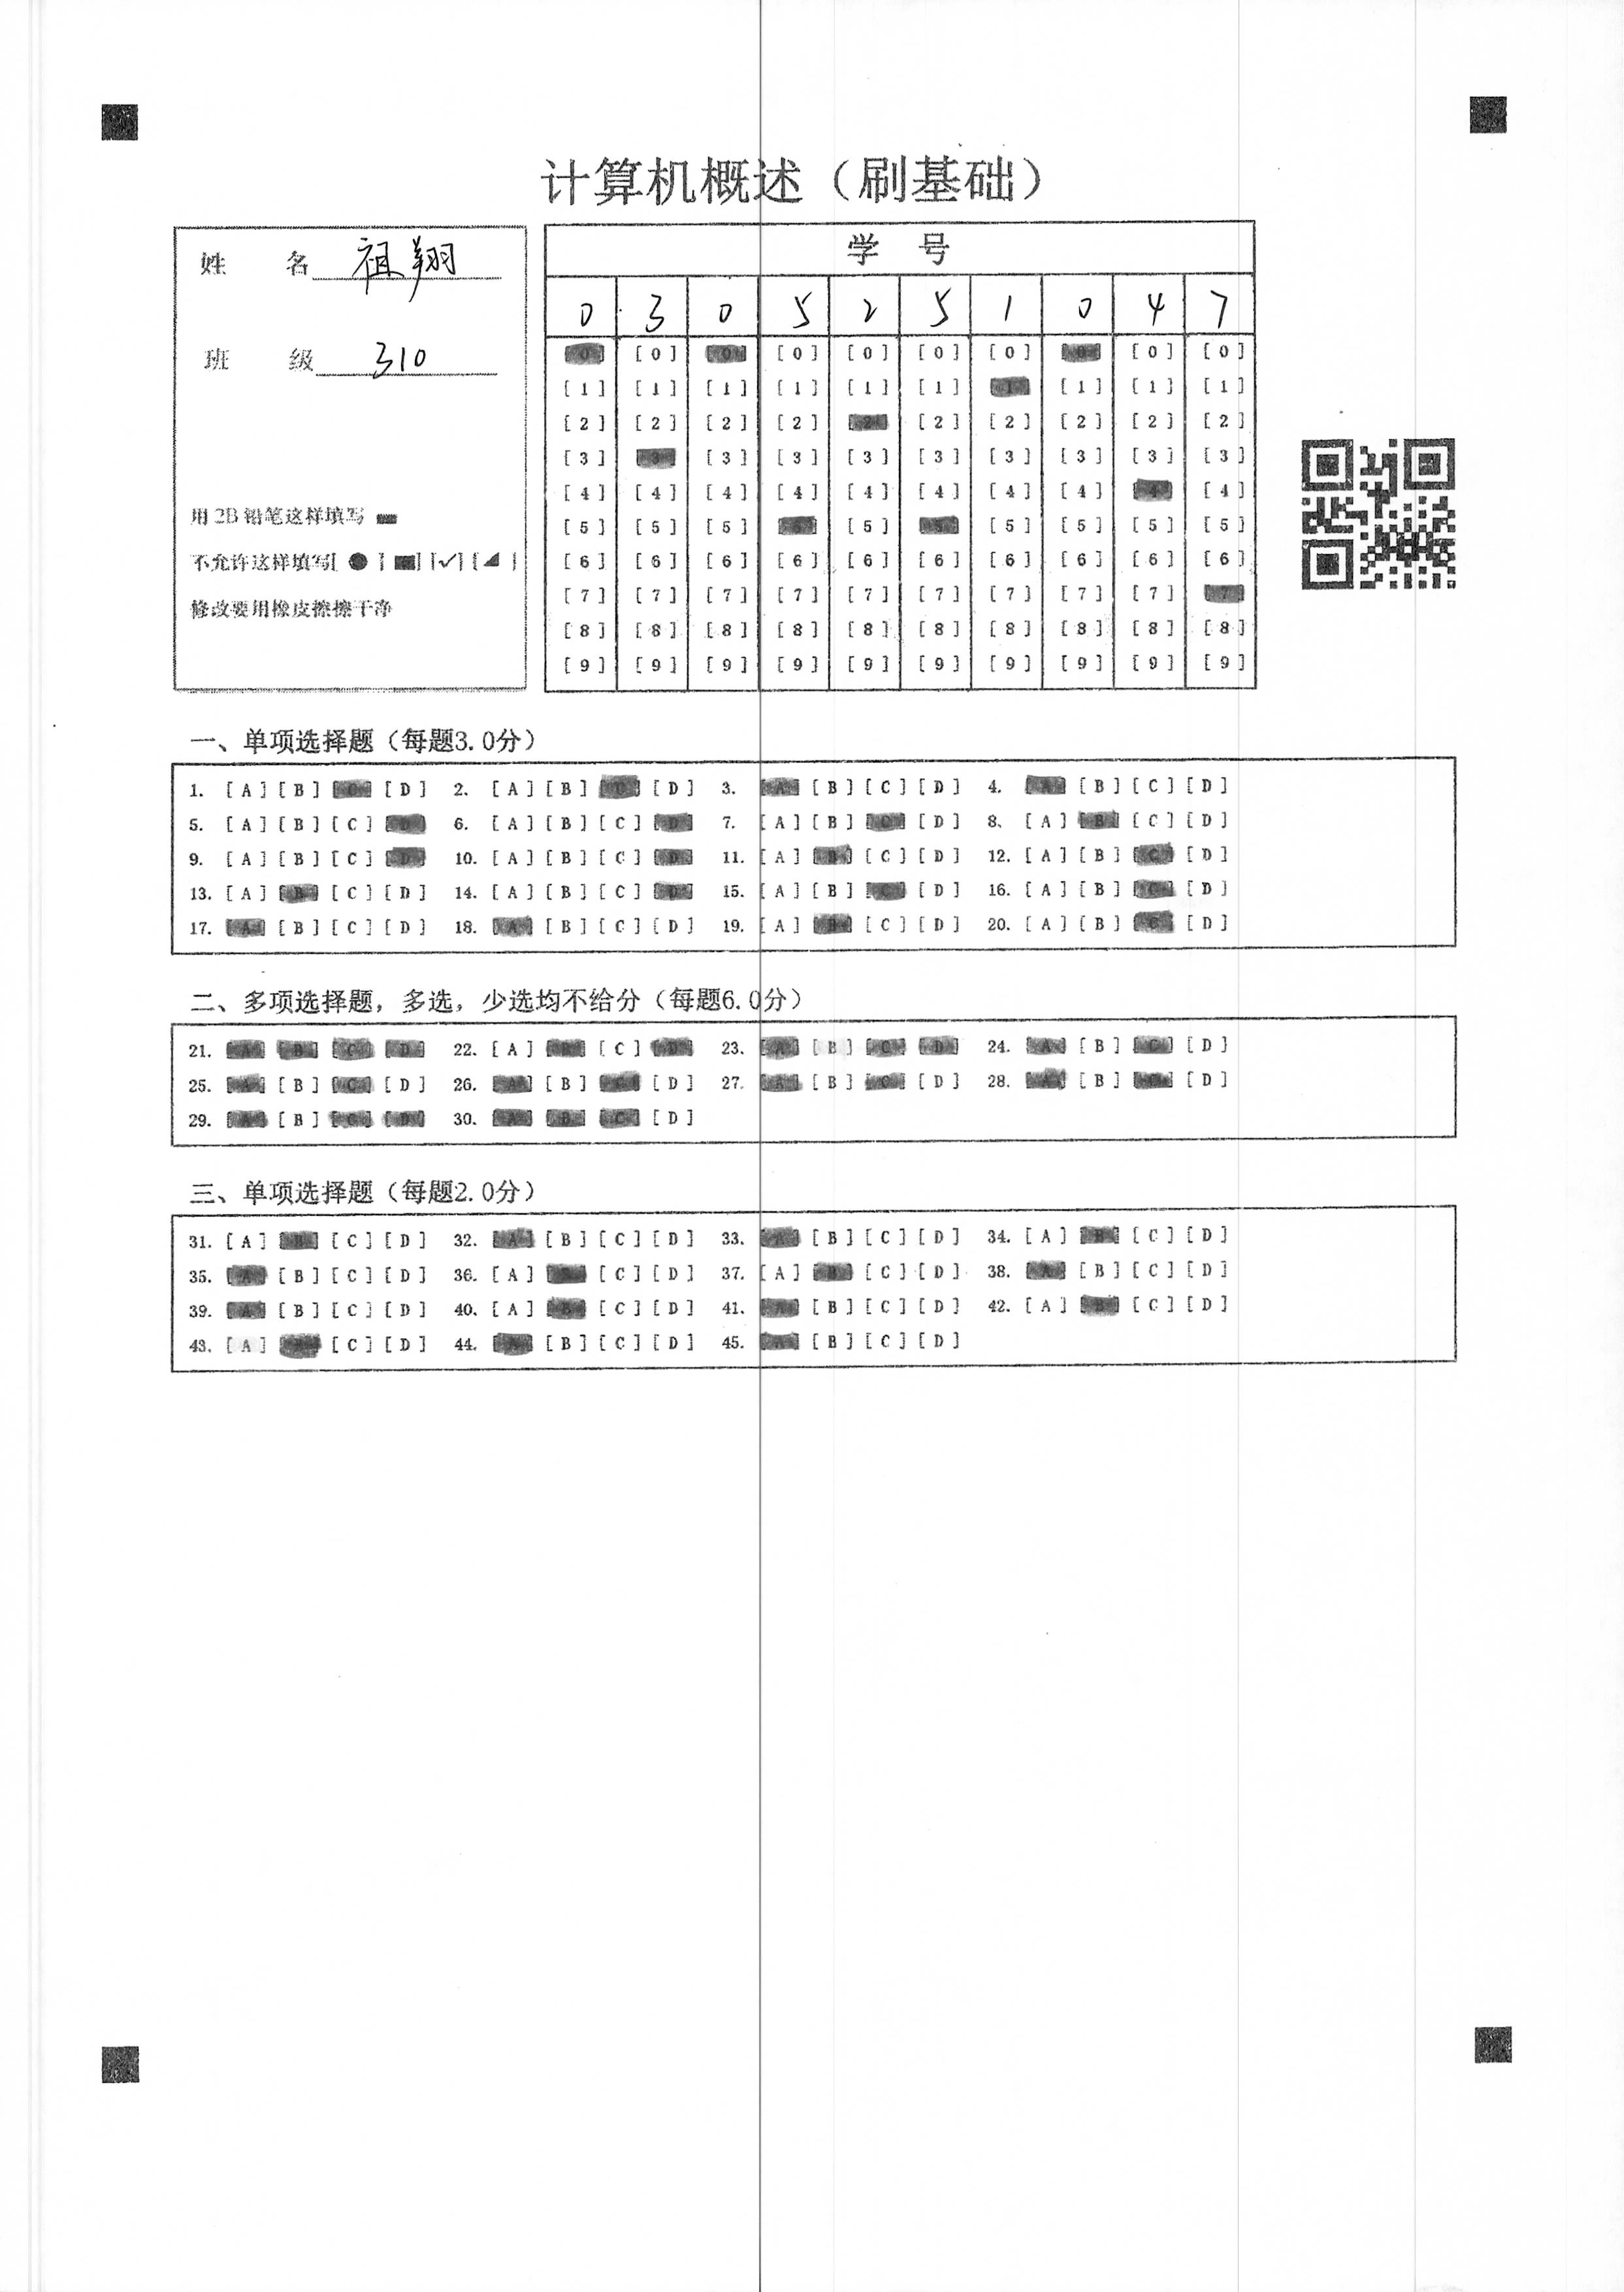 计算机概述（刷基础）
姓 名 祖翔
班 级 310
用2B铅笔这样填写
不允许这样填写[ ● ] [ ■ ] [✓] [ ◢ ]
修改要用橡皮擦擦干净
学 号
0 3 0 5 2 5 1 0 4 7
[0] [0] [0] [0] [0] [0] [0] [0] [0] [0]
[1] [1] [1] [1] [1] [1] [1] [1] [1] [1]
[2] [2] [2] [2] [2] [2] [2] [2] [2] [2]
[3] [3] [3] [3] [3] [3] [3] [3] [3] [3]
[4] [4] [4] [4] [4] [4] [4] [4] [4] [4]
[5] [5] [5] [5] [5] [5] [5] [5] [5] [5]
[6] [6] [6] [6] [6] [6] [6] [6] [6] [6]
[7] [7] [7] [7] [7] [7] [7] [7] [7] [7]
[8] [8] [8] [8] [8] [8] [8] [8] [8] [8]
[9] [9] [9] [9] [9] [9] [9] [9] [9] [9]
一、单项选择题（每题3.0分）
1. [A] [B] [C] [D] 2. [A] [B] [C] [D] 3. [A] [B] [C] [D] 4. [A] [B] [C] [D]
5. [A] [B] [C] [D] 6. [A] [B] [C] [D] 7. [A] [B] [C] [D] 8. [A] [B] [C] [D]
9. [A] [B] [C] [D] 10. [A] [B] [C] [D] 11. [A] [B] [C] [D] 12. [A] [B] [C] [D]
13. [A] [B] [C] [D] 14. [A] [B] [C] [D] 15. [A] [B] [C] [D] 16. [A] [B] [C] [D]
17. [A] [B] [C] [D] 18. [A] [B] [C] [D] 19. [A] [B] [C] [D] 20. [A] [B] [C] [D]
二、多项选择题，多选，少选均不给分（每题6.0分）
21. [A] [B] [C] [D] 22. [A] [B] [C] [D] 23. [A] [B] [C] [D] 24. [A] [B] [C] [D]
25. [A] [B] [C] [D] 26. [A] [B] [C] [D] 27. [A] [B] [C] [D] 28. [A] [B] [C] [D]
29. [A] [B] [C] [D] 30. [A] [B] [C] [D]
三、单项选择题（每题2.0分）
31. [A] [B] [C] [D] 32. [A] [B] [C] [D] 33. [A] [B] [C] [D] 34. [A] [B] [C] [D]
35. [A] [B] [C] [D] 36. [A] [B] [C] [D] 37. [A] [B] [C] [D] 38. [A] [B] [C] [D]
39. [A] [B] [C] [D] 40. [A] [B] [C] [D] 41. [A] [B] [C] [D] 42. [A] [B] [C] [D]
43. [A] [B] [C] [D] 44. [A] [B] [C] [D] 45. [A] [B] [C] [D]